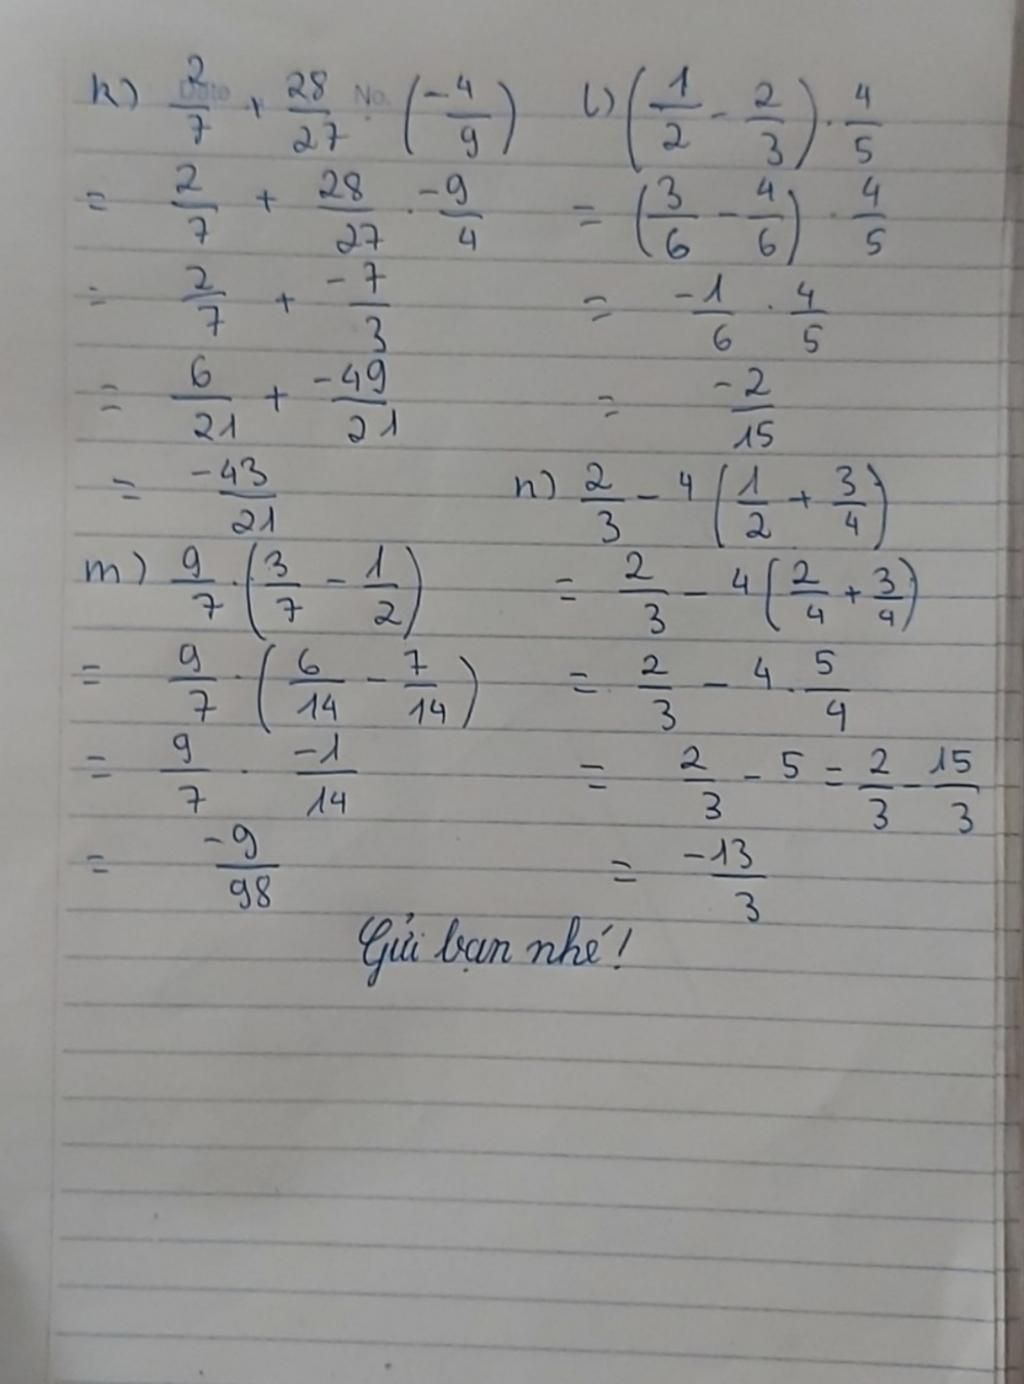 k) 2/7 + 28/27 : (-4/9)
= 2/7 + 28/27 . -9/4
= 2/7 + -7/3
= 6/21 + -49/21
= -43/21
l) (1/2 - 2/3) . 4/5
= (3/6 - 4/6) . 4/5
= -1/6 . 4/5
= -2/15
m) 9/7 . (3/7 - 1/2)
= 9/7 . (6/14 - 7/14)
= 9/7 . -1/14
= -9/98
n) 2/3 - 4 (1/2 + 3/4)
= 2/3 - 4 (2/4 + 3/4)
= 2/3 - 4 . 5/4
= 2/3 - 5 = 2/3 - 15/3
= -13/3
Gửi bạn nhé!
Date No.